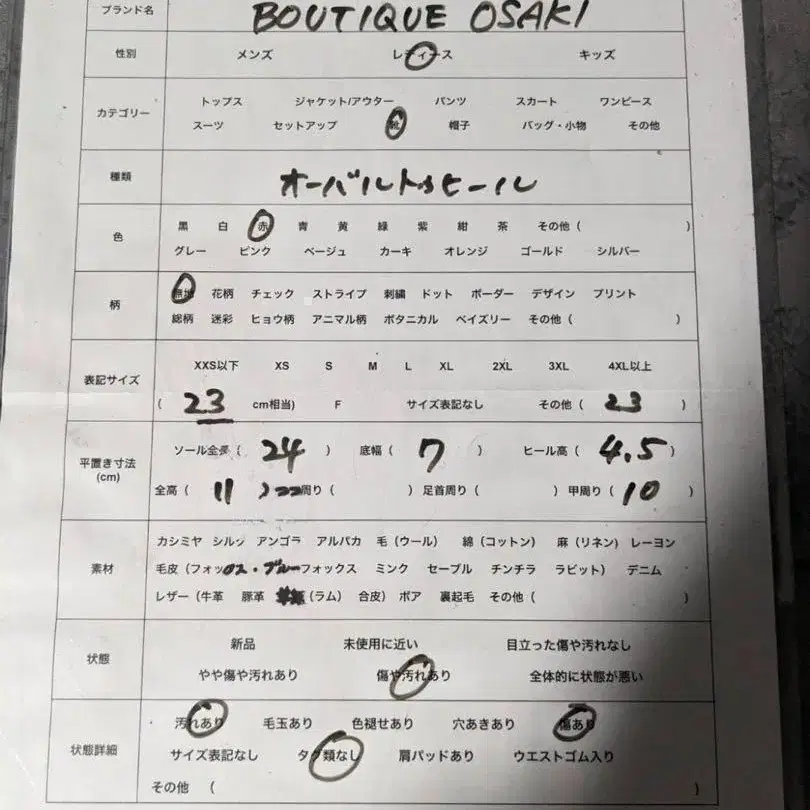 ブランド名 BOUTIQUE OSAKI
性別 メンズ レディース キッズ
カテゴリー トップス ジャケット/アウター パンツ スカート ワンピース
スーツ セットアップ 靴 帽子 バッグ・小物 その他
種類 オーバルトゥヒール
色 黒 白 赤 青 黄 緑 紫 紺 茶 その他 ( )
グレー ピンク ベージュ カーキ オレンジ ゴールド シルバー
柄 無地 花柄 チェック ストライプ 刺繍 ドット ボーダー デザイン プリント
総柄 迷彩 ヒョウ柄 アニマル柄 ボタニカル ペイズリー その他 ( )
表記サイズ XXS以下 XS S M L XL 2XL 3XL 4XL以上
( 23 cm相当) F サイズ表記なし その他 ( 23 )
平置き寸法 (cm) ソール全長 ( 24 ) 底幅 ( 7 ) ヒール高 ( 4.5 )
全高 ( 11 ) 周り ( ) 足首周り ( ) 甲周り ( 10 )
素材 カシミヤ シルク アンゴラ アルパカ 毛 (ウール) 綿 (コットン) 麻 (リネン) レーヨン
毛皮 (フォックス・ブルーフォックス ミンク セーブル チンチラ ラビット) デニム
レザー (牛革 豚革 (ラム) 合皮) ボア 裏起毛 その他 ( )
状態 新品 未使用に近い 目立った傷や汚れなし
やや傷や汚れあり 傷や汚れあり 全体的に状態が悪い
状態詳細 汚れあり 毛玉あり 色褪せあり 穴あきあり 傷あり
サイズ表記なし タグ類なし 肩パッドあり ウエストゴム入り
その他 ( )